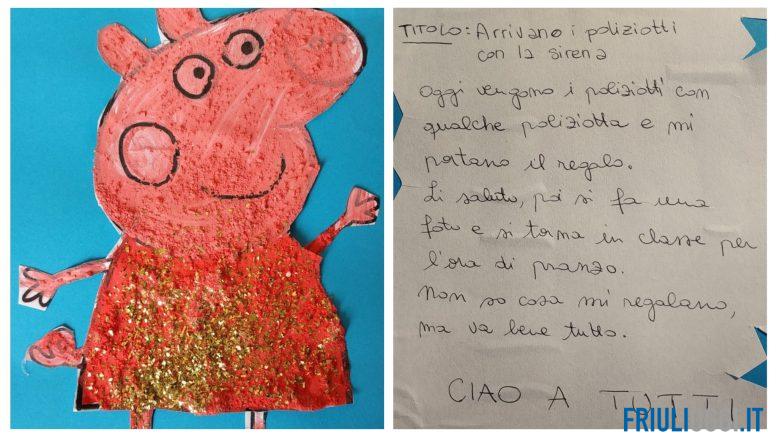 TITOLO: Arrivano i poliziotti
con la sirena
Oggi vengono i poliziotti con
qualche poliziotta e mi
portano il regalo.
Li saluto, poi si fa una
foto e si torna in classe per
l'ora di pranzo.
Non so cosa mi regalano,
ma va bene tutto.
CIAO A TUTTI
FRIULIOGGI.IT